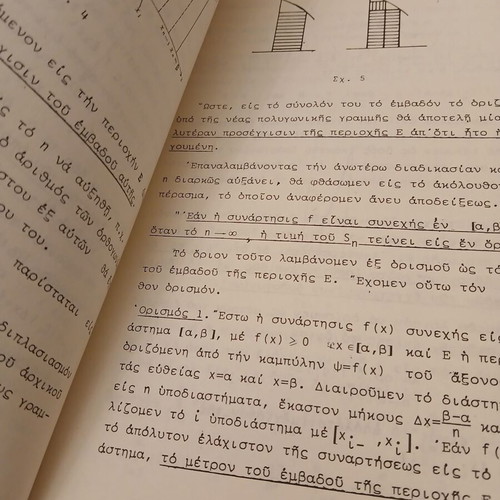 4
όμενον είς τήν περιοχήν
γισιν τοῦ ἐμβαδοῦ αὐτῆς
ς τό n νά αὐξηθῇ, π.χ.
ό ἀριθμός τῶν ὀρθογων
στου ἐξ αὐτῶν θά
ου του.
παρίσταται είς
διπλασιασμόν
οῦ ἀρχικοῦ
ς γραμ-
Σχ. 5
Ὥστε, είς τό σύνολόν του τό ἐμβαδόν τό ὁριζ
ὑπό τῆς νέας πολυγωνικῆς γραμμῆς θά ἀποτελῇ μία
λυτέραν προσέγγισιν τῆς περιοχῆς Ε ἀπ΄ὅτι ἦτο ἡ
χουμένη.
Ἐπαναλαμβάνοντας τήν ἀνωτέρω διαδικασίαν κα
n διαρκῶς αὐξάνει, θά φθάσωμεν είς τό ἀκόλουθον
πέρασμα, τό ὁποῖον ἀναφέρομεν ἄνευ ἀποδείξεως.
"Ἐάν ἡ συνάρτησις f εἶναι συνεχής ἐν [α,β
ὅταν τό n→∞, ἡ τιμή τοῦ Sn τείνει είς ἕν ὅρ
Τό ὅριον τοῦτο λαμβάνομεν ἐξ ὁρισμοῦ ὡς τό
τοῦ ἐμβαδοῦ τῆς περιοχῆς Ε. Ἔχομεν οὕτω τόν
θον ὁρισμόν.
Ὁρισμός 1. Ἔστω ἡ συνάρτησις f(x) συνεχής είς
άστημα [α,β], μέ f(x) ⩾ 0 ∀x∈[α,β] καί Ε ἡ πε
ὁριζόμένη ἀπό τήν καμπύλην ψ=f(x) τοῦ ἄξονο
τάς εὐθείας x=α καί x=β. Διαιροῦμεν τό διάστη
είς n ὑποδιαστήματα, ἕκαστον μήκους Δx=(β-α)/n κα
λίζομεν τό i ὑποδιάστημα μέ [xi-, xi]. Ἐάν f(
τό ἀπόλυτον ἐλάχιστον τῆς συναρτήσεως είς τό
άστημα, τό μέτρον τοῦ ἐμβαδοῦ τῆς περιοχῆς Ε